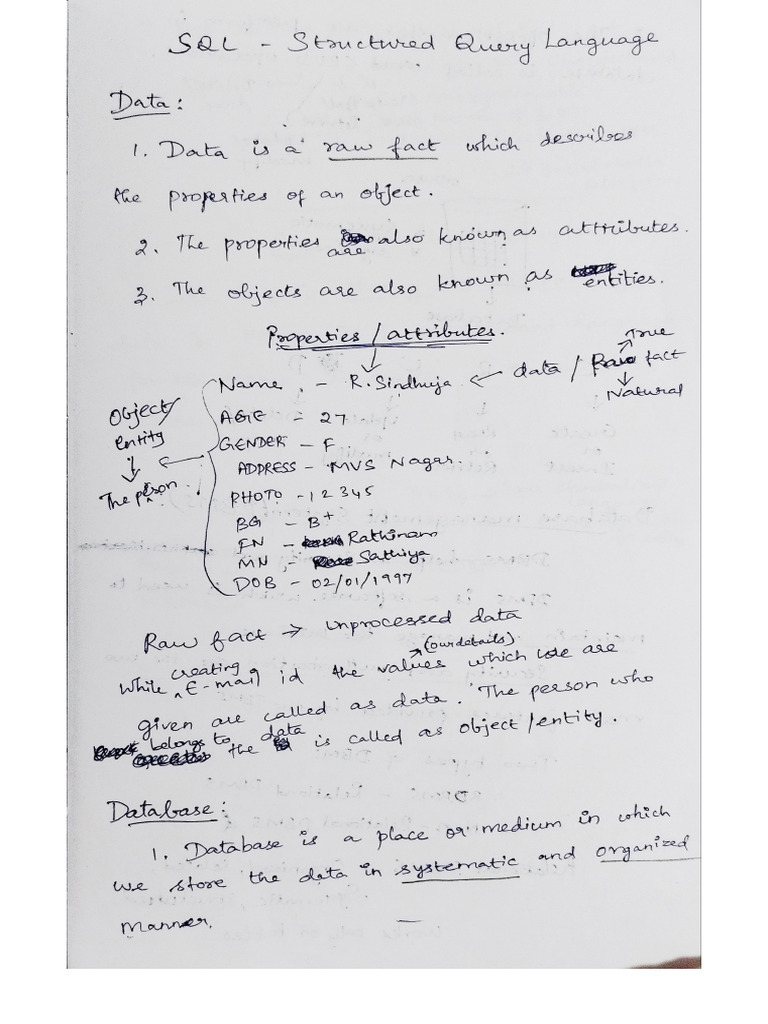 SQL - Structured Query Language
Data:
1. Data is a raw fact which describes
the properties of an object.
2. The properties are also known as attributes.
3. The objects are also known as entities.
Properties / attributes.
True
Name - R. Sindhuja ← data / Raw fact
Natural
Object/
entity
↓
The person.
AGE = 27
GENDER - F
ADDRESS - MVS Nagar.
PHOTO - 12345
BG - B+
FN - Rathinam
MN - Sathiya
DOB - 02/01/1997
Raw fact → unprocessed data
(our details)
While creating E-mail id the values which we are
given are called as data. The person who
belongs to the data is called as object/entity.
Database:
1. Database is a place or medium in which
we store the data in systematic and organized
manner.